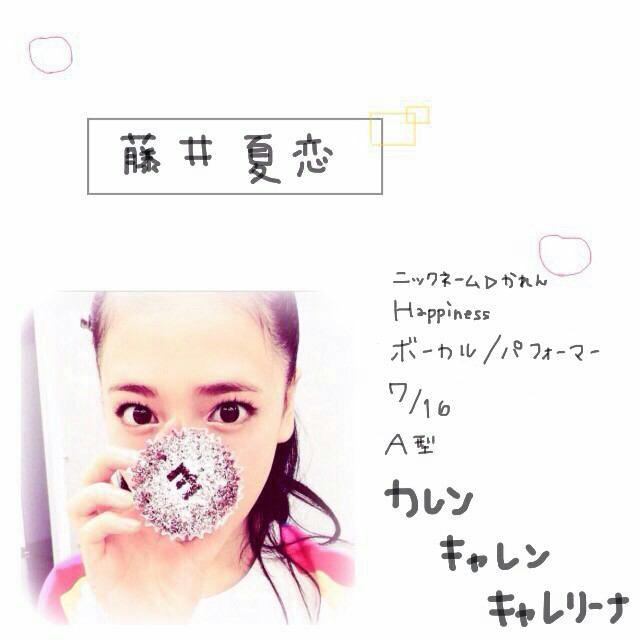 藤井夏恋
ニックネーム▷かれん
Happiness
ボーカル/パフォーマー
7/16
A型
カレン
キャレン
キャレリーナ
m